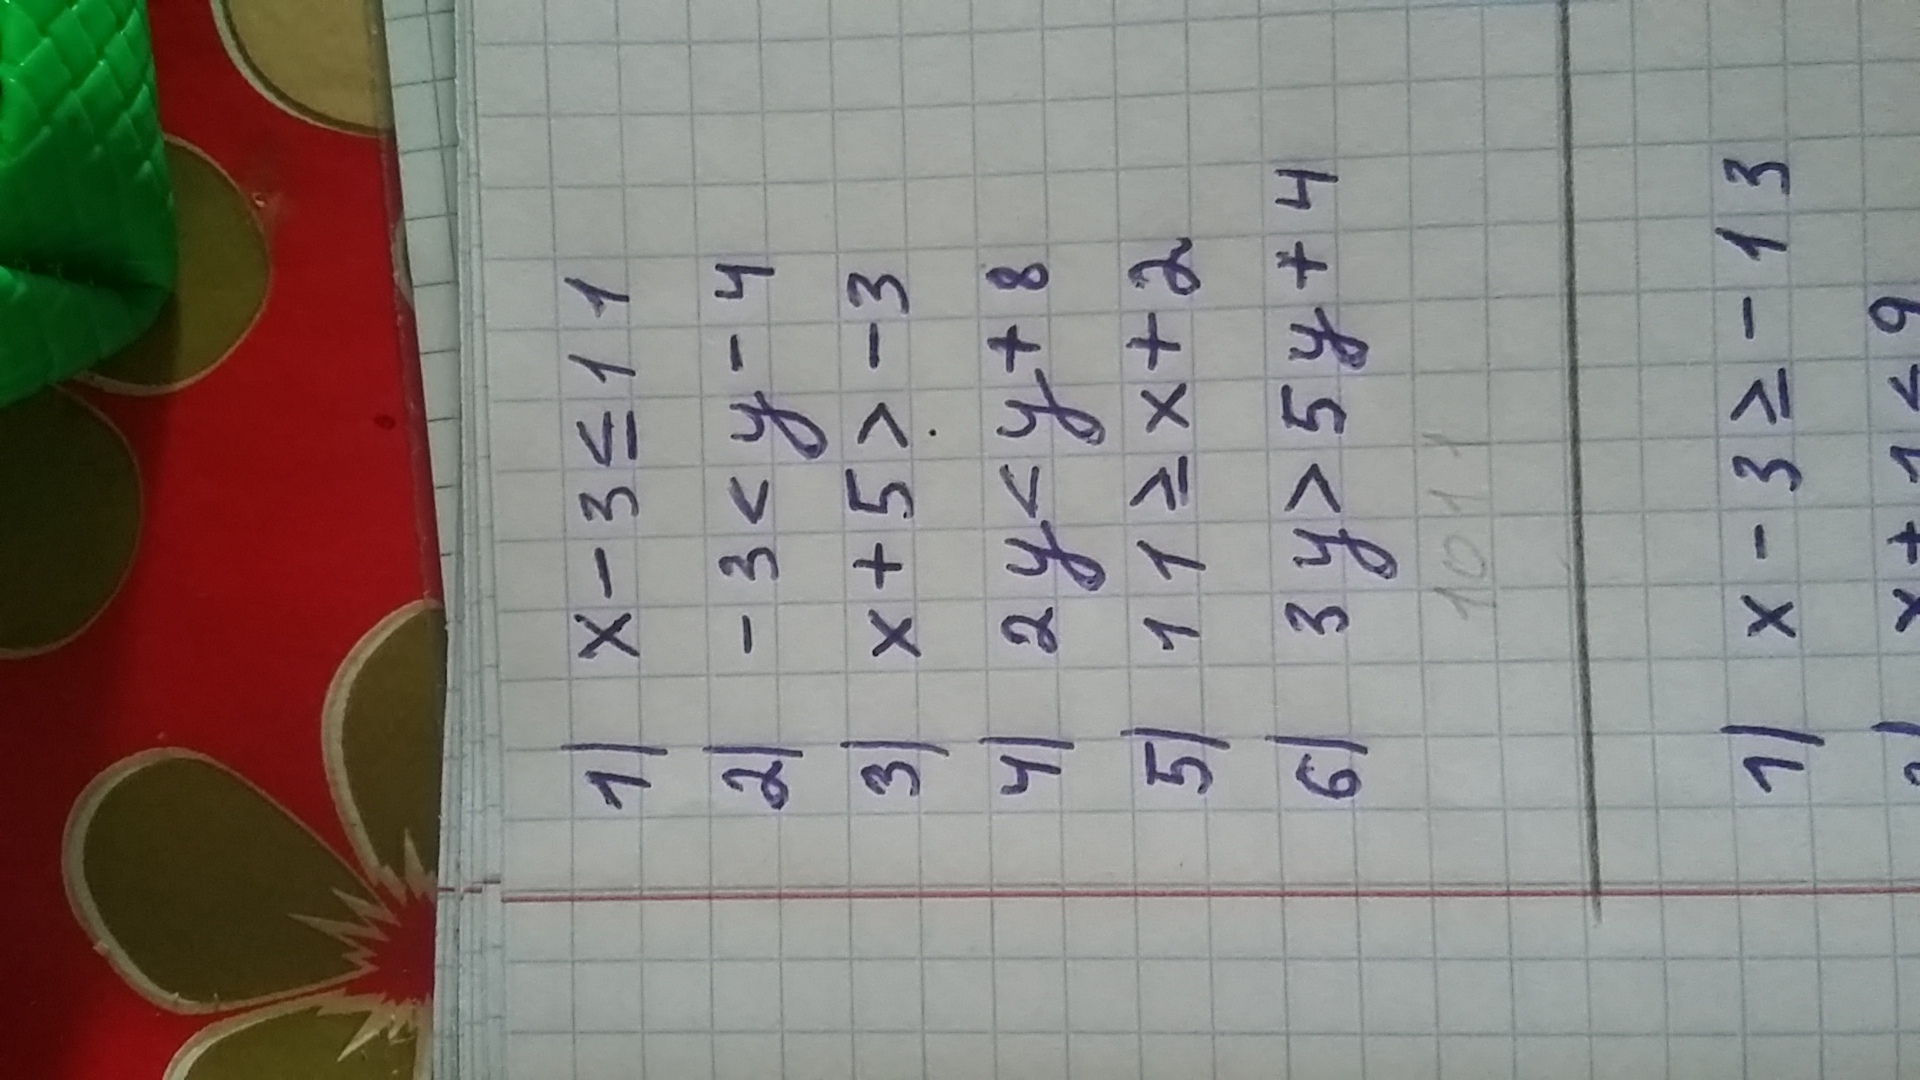 1) x - 3 ≤ 11
2) - 3 < y - 4
3) x + 5 > - 3
4) 2y < y + 8
5) 11 ≥ x + 2
6) 3y > 5y + 4
1011
1) x - 3 ≥ - 13
x + 1 ≤ 9